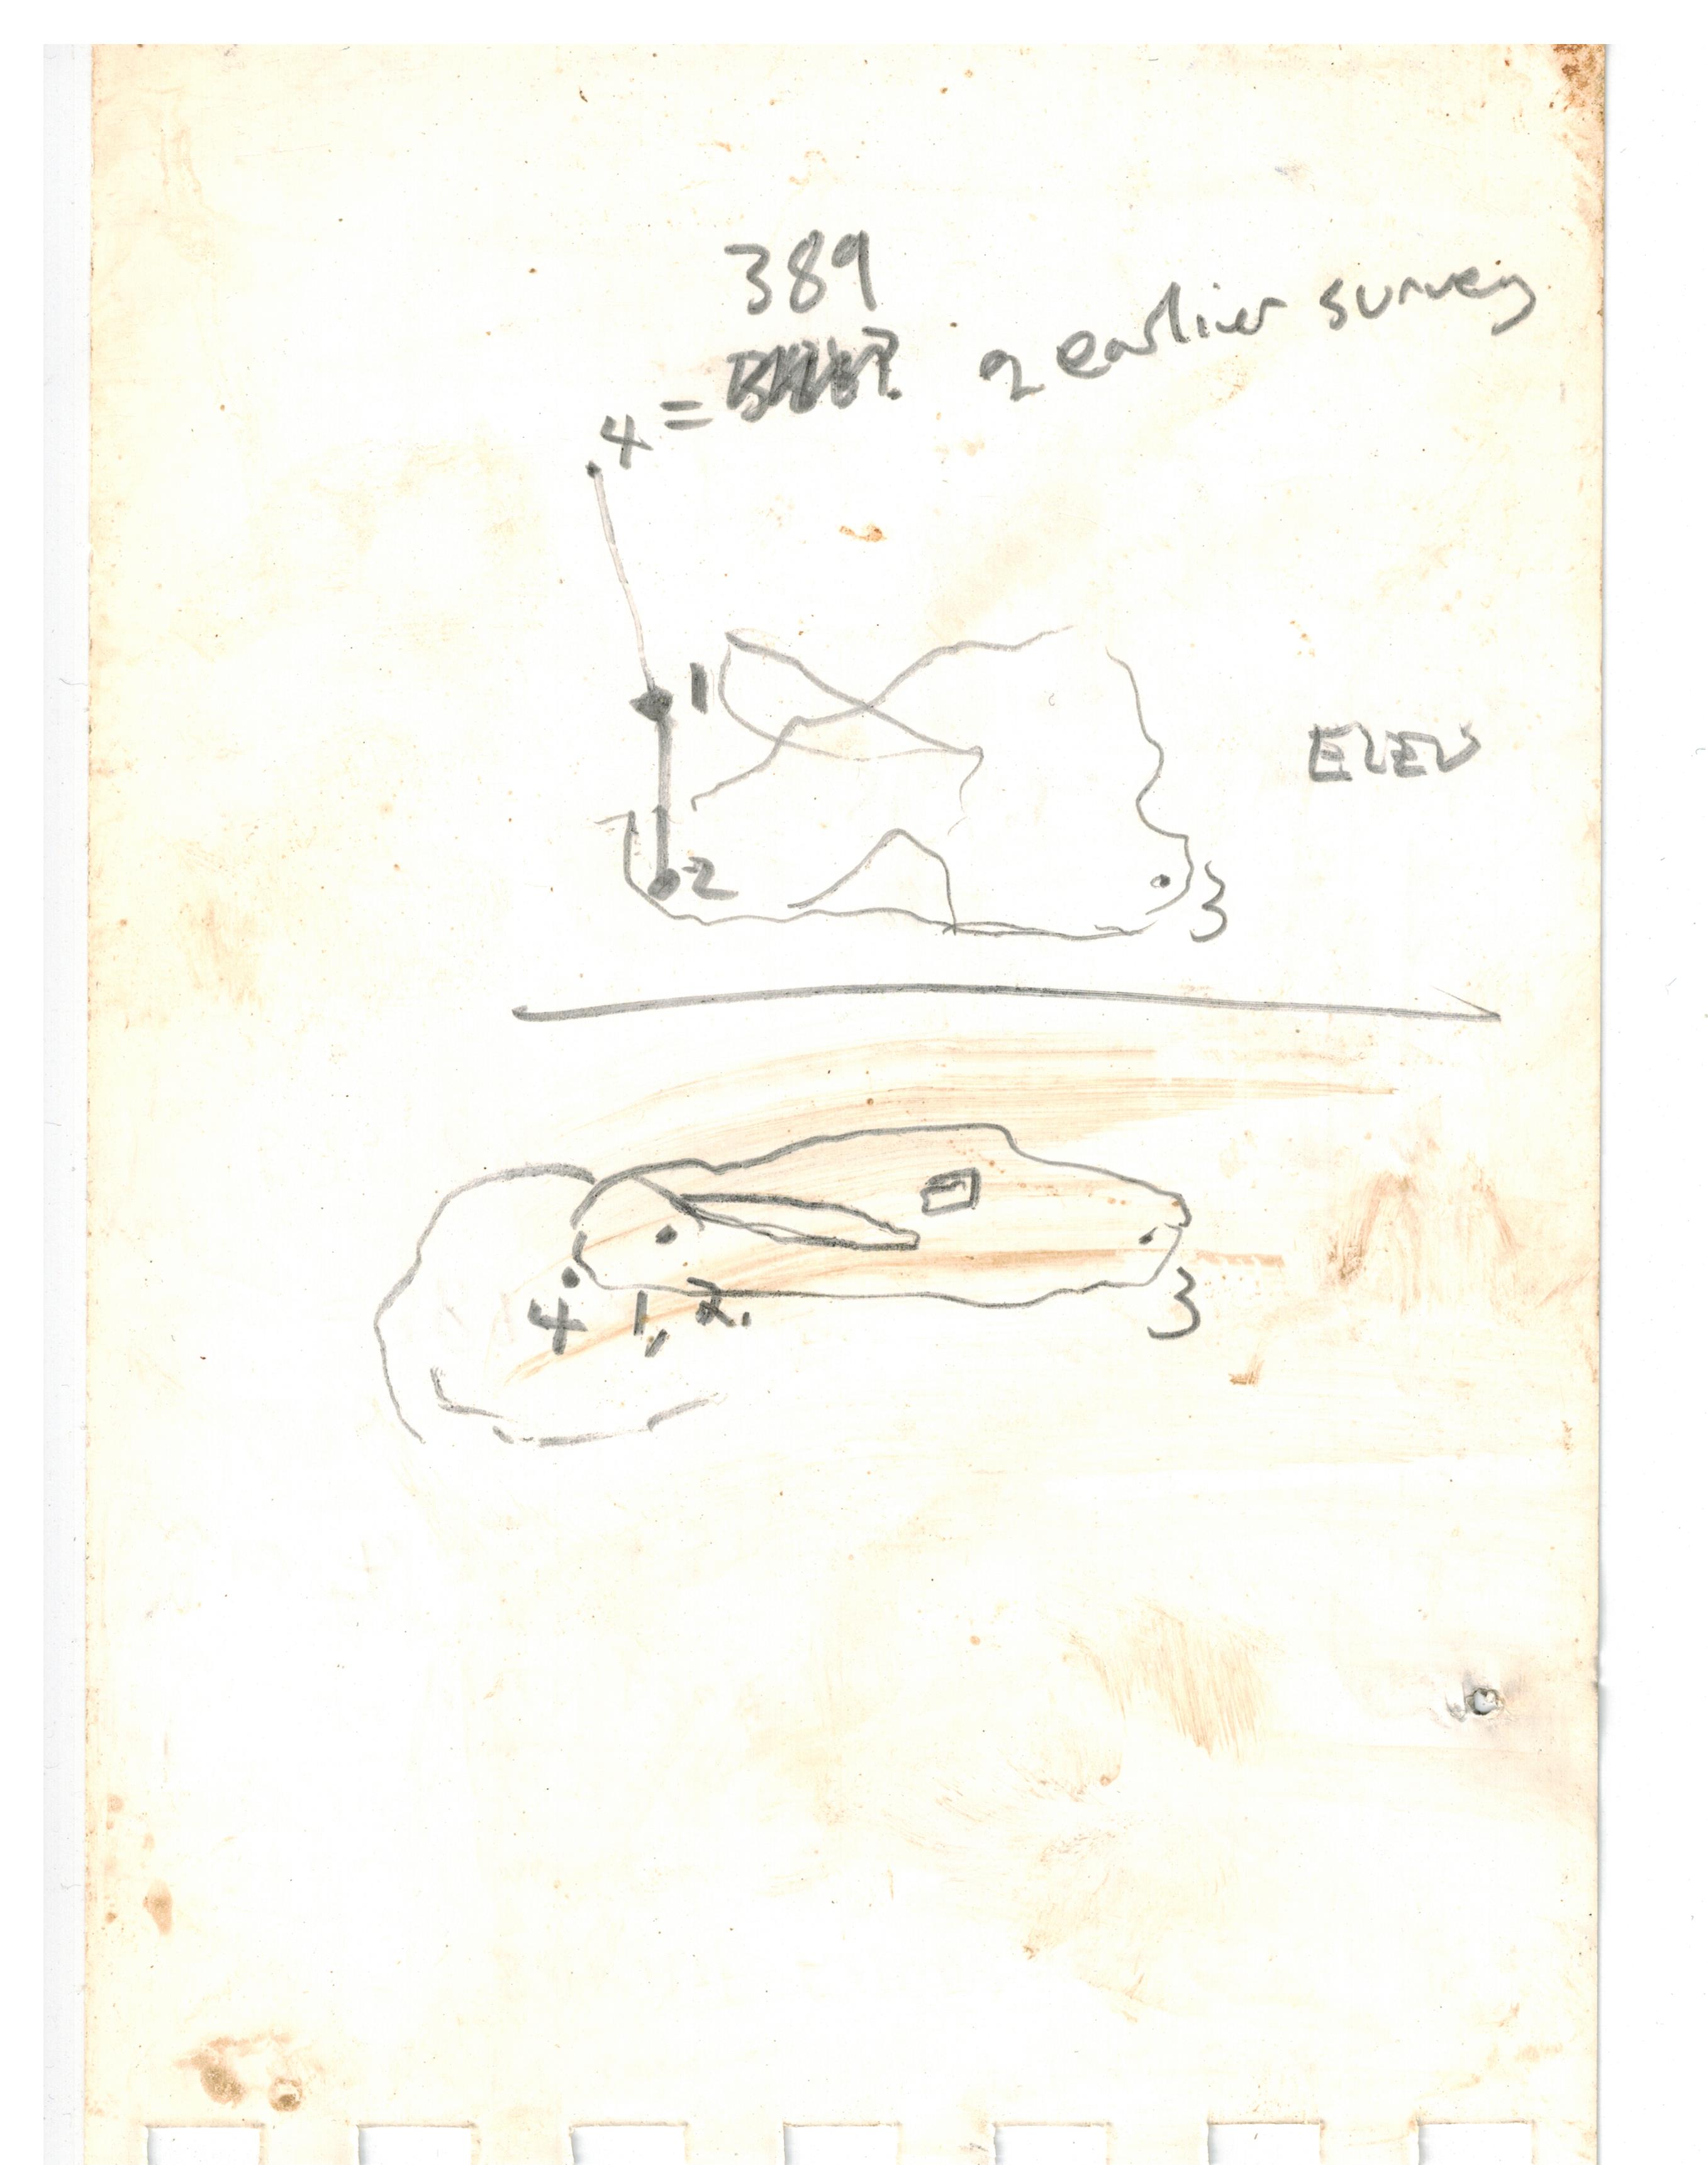 389
4 = earlier survey
1
ELEV
2
3
4 1, 2.
3